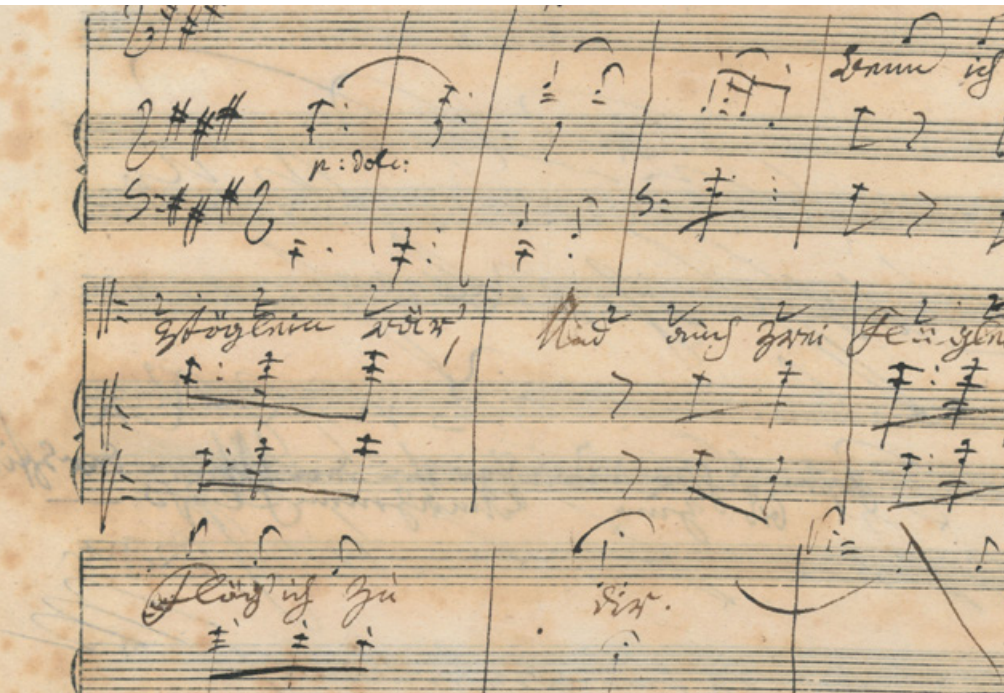 Wenn ich
p: dolc:
Vöglein wär, Und auch zwei Flügle
Flög ich zu dir.
Vi=